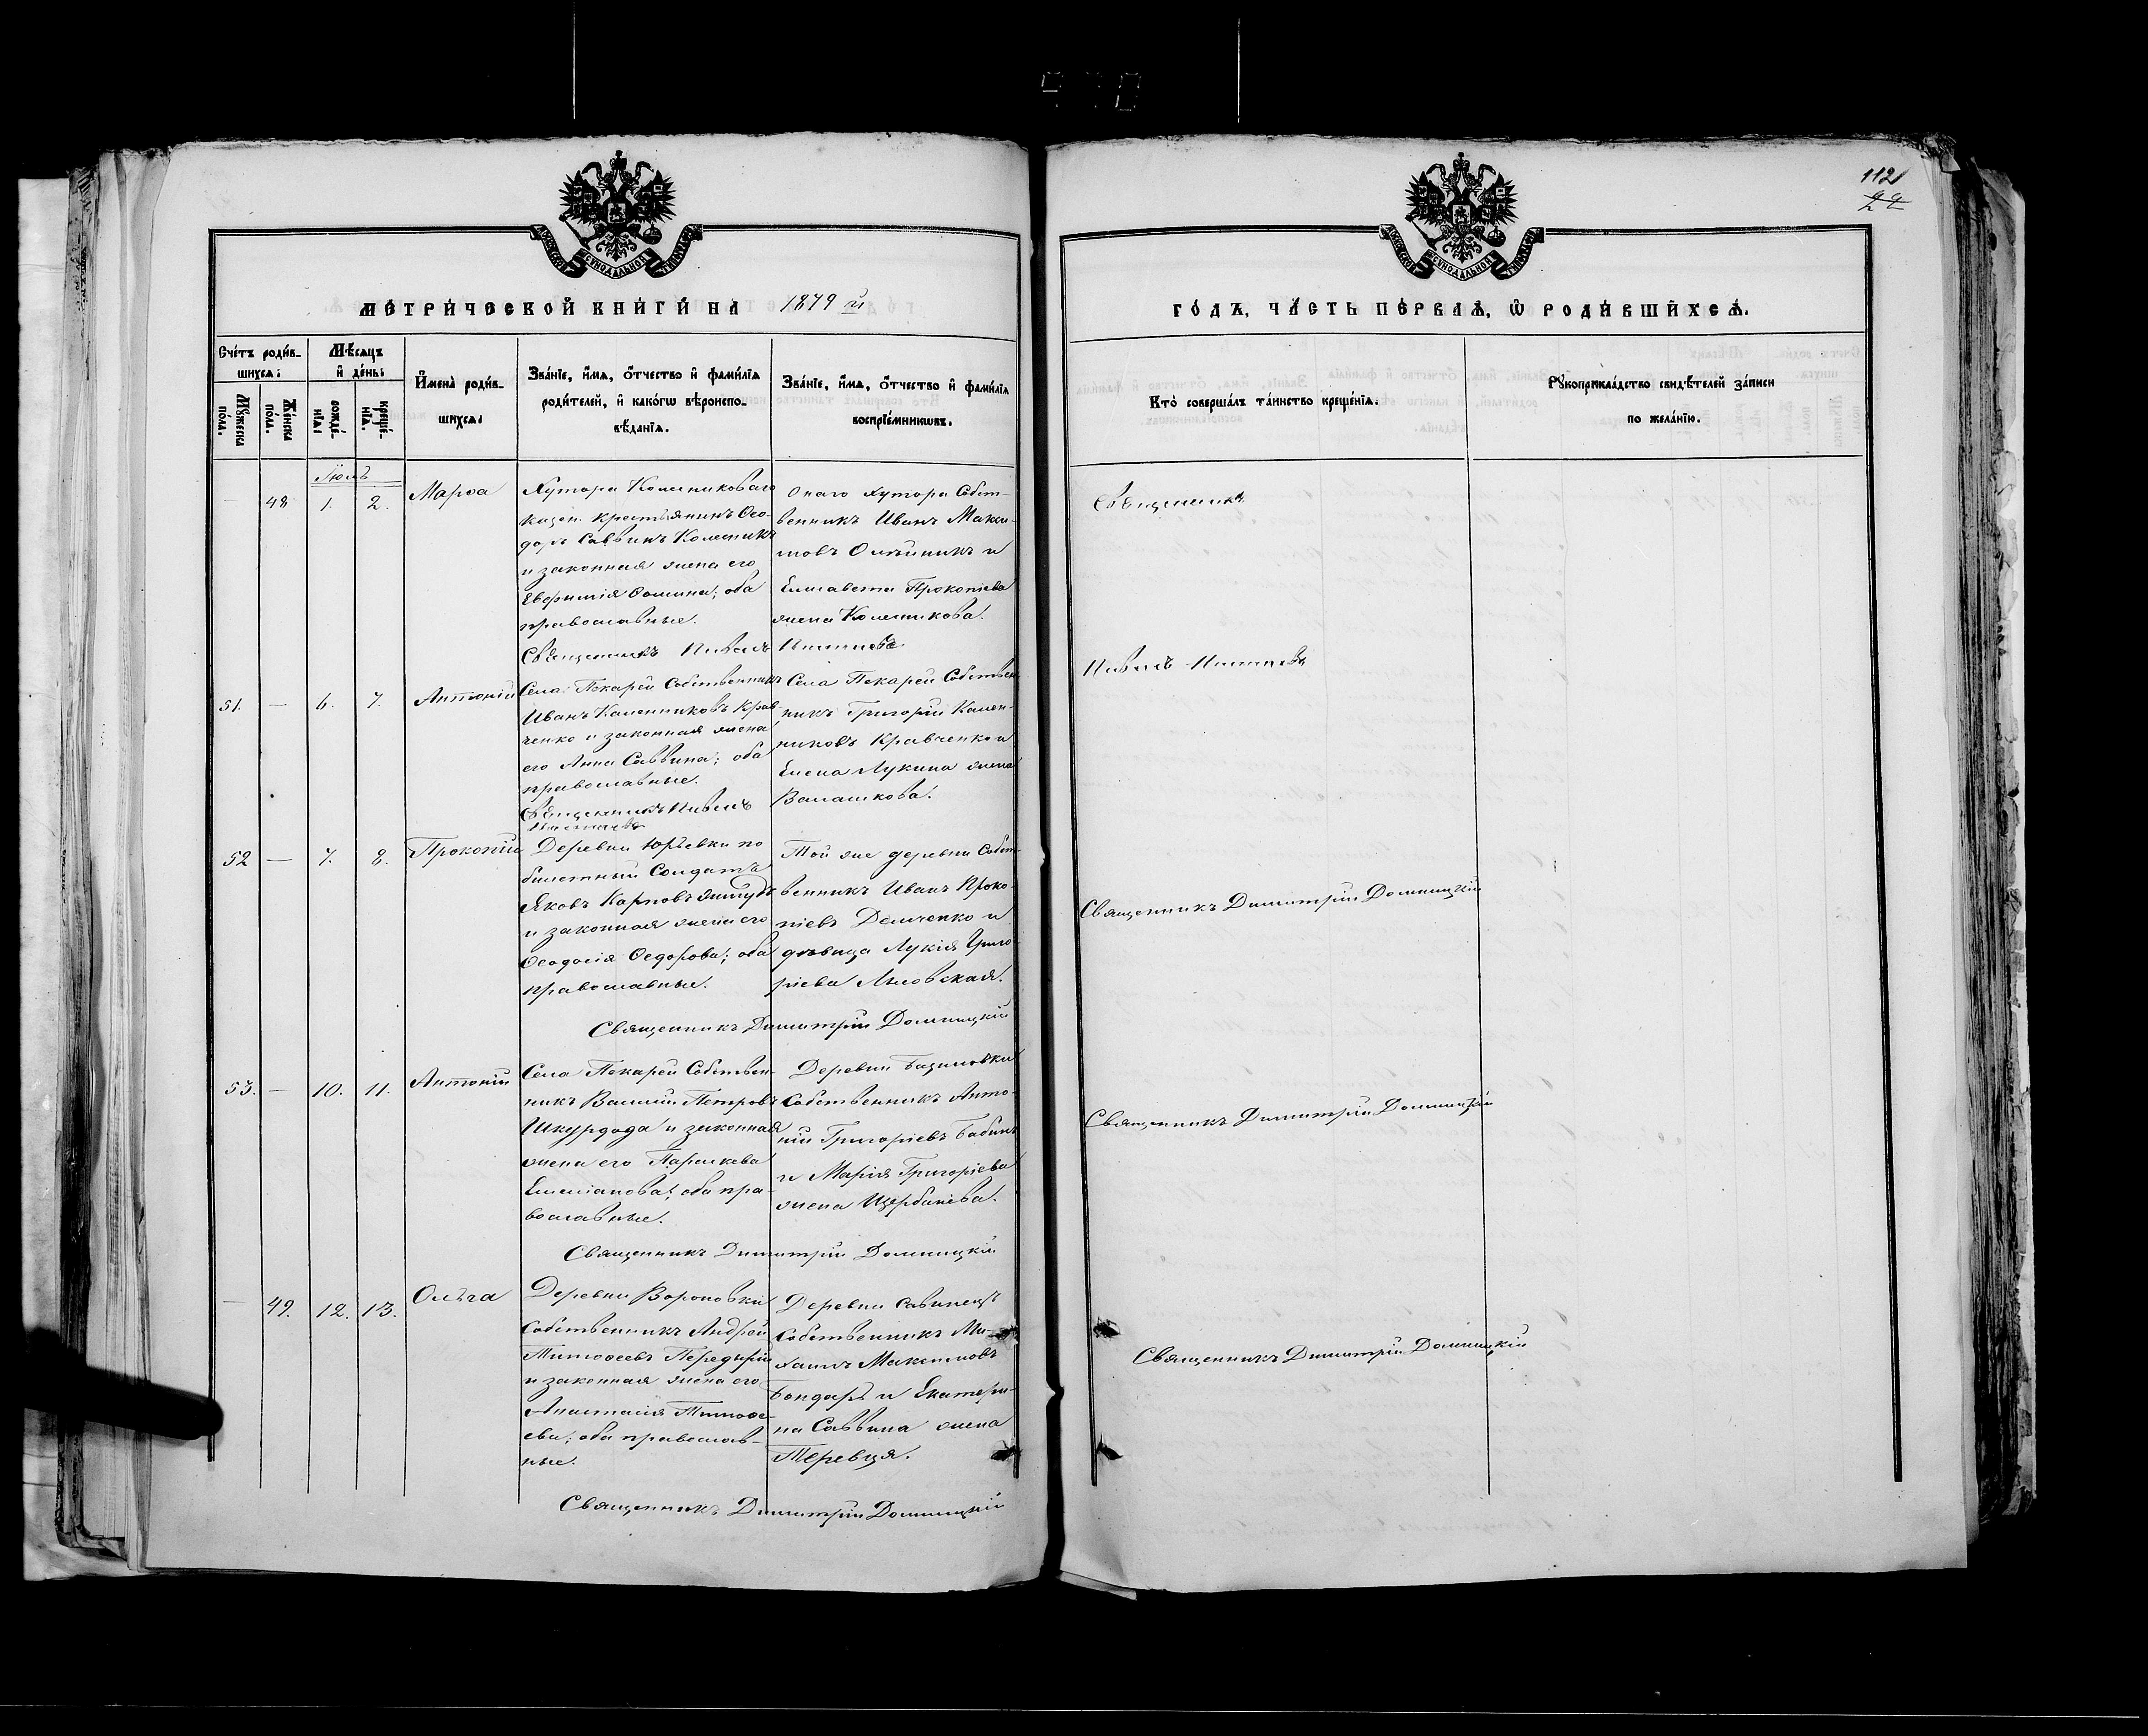 112
МЕТРИЧЕСКОЙ КНИГИ НА 1879 й
ГОДЪ, ЧАСТЬ ПЕРВАЯ, Ѡ РОДИВШИХСЯ.
Счетъ родив-
шихся:
Мужеска пола.
Женска пола.
Мѣсяцъ
и день:
рожде-
нія:
креще-
нія.
Имена родив-
шихся:
Званіе, имя, отчество и фамилія
родителей, и какогѡ вѣроиспо-
вѣданія.
Званіе, имя, отчество и фамилія
воспріемникѡвъ.
Кто совершалъ таинство крещенія.
Рукоприкладство свидѣтелей записи
по желанію.
Іюль
48 1. 2. Марѳа
Хутора Колесниковаго
казен. крестьянинъ Ѳео-
доръ Саввинъ Колесникъ
и законная жена его
Евфимія Ѳомина; оба
православные.
Священникъ Павелъ
Онаго хутора Собст-
венникъ Иванъ Макси-
мовъ Олѣйникъ и
Елисавета Прокопіева
жена Колесникова.
Священникъ
Павелъ
51. — 6. 7. Антоній
Села Пекарей Собственникъ
Иванъ Калинниковъ Крав-
ченко и законная жена
его Анна Саввина; оба
православные.
Священникъ Павелъ
Села Пекарей Собствен-
никъ Григорій Калин-
никовъ Кравченко и
Елена Лукина жена
Валашкова.
52 — 7. 8. Прокопій
Деревни Юрьевки по
билетный Солдатъ
Яковъ Карповъ
и законная жена его
Ѳеодосія Ѳедорова; оба
православные.
Той же деревни Собст-
венникъ Иванъ Проко-
піевъ Демченко и
дѣвица Лукія Григо-
ріева
Священникъ Димитрій Домницкій
Священникъ Димитрій Домницкій
53. — 10. 11. Антоній
Села Пекарей Собствен-
никъ Василій Петровъ
Шкурдода и законная
жена его Параскева
Емеліанова; оба пра-
вославные.
Деревни
Собственникъ Анто-
ній Григоріевъ Бабичъ
и Марія Григоріева
жена Щербаніева.
Священникъ Димитрій Домницкій
Священникъ Димитрій Домницкій
— 49. 12. 13. Ольга
Деревни Вороновки
Собственникъ Андрей
Тимоѳеевъ Передерій
и законная жена его
Анастасія Тимоѳе-
ева; оба православ-
ные.
Деревни Савинецъ
Собственникъ Ми-
хаилъ Максимовъ
Бондарь и Екатери-
на Саввина жена
Теревця.
Священникъ Димитрій Домницкій
Священникъ Димитрій Домницкій